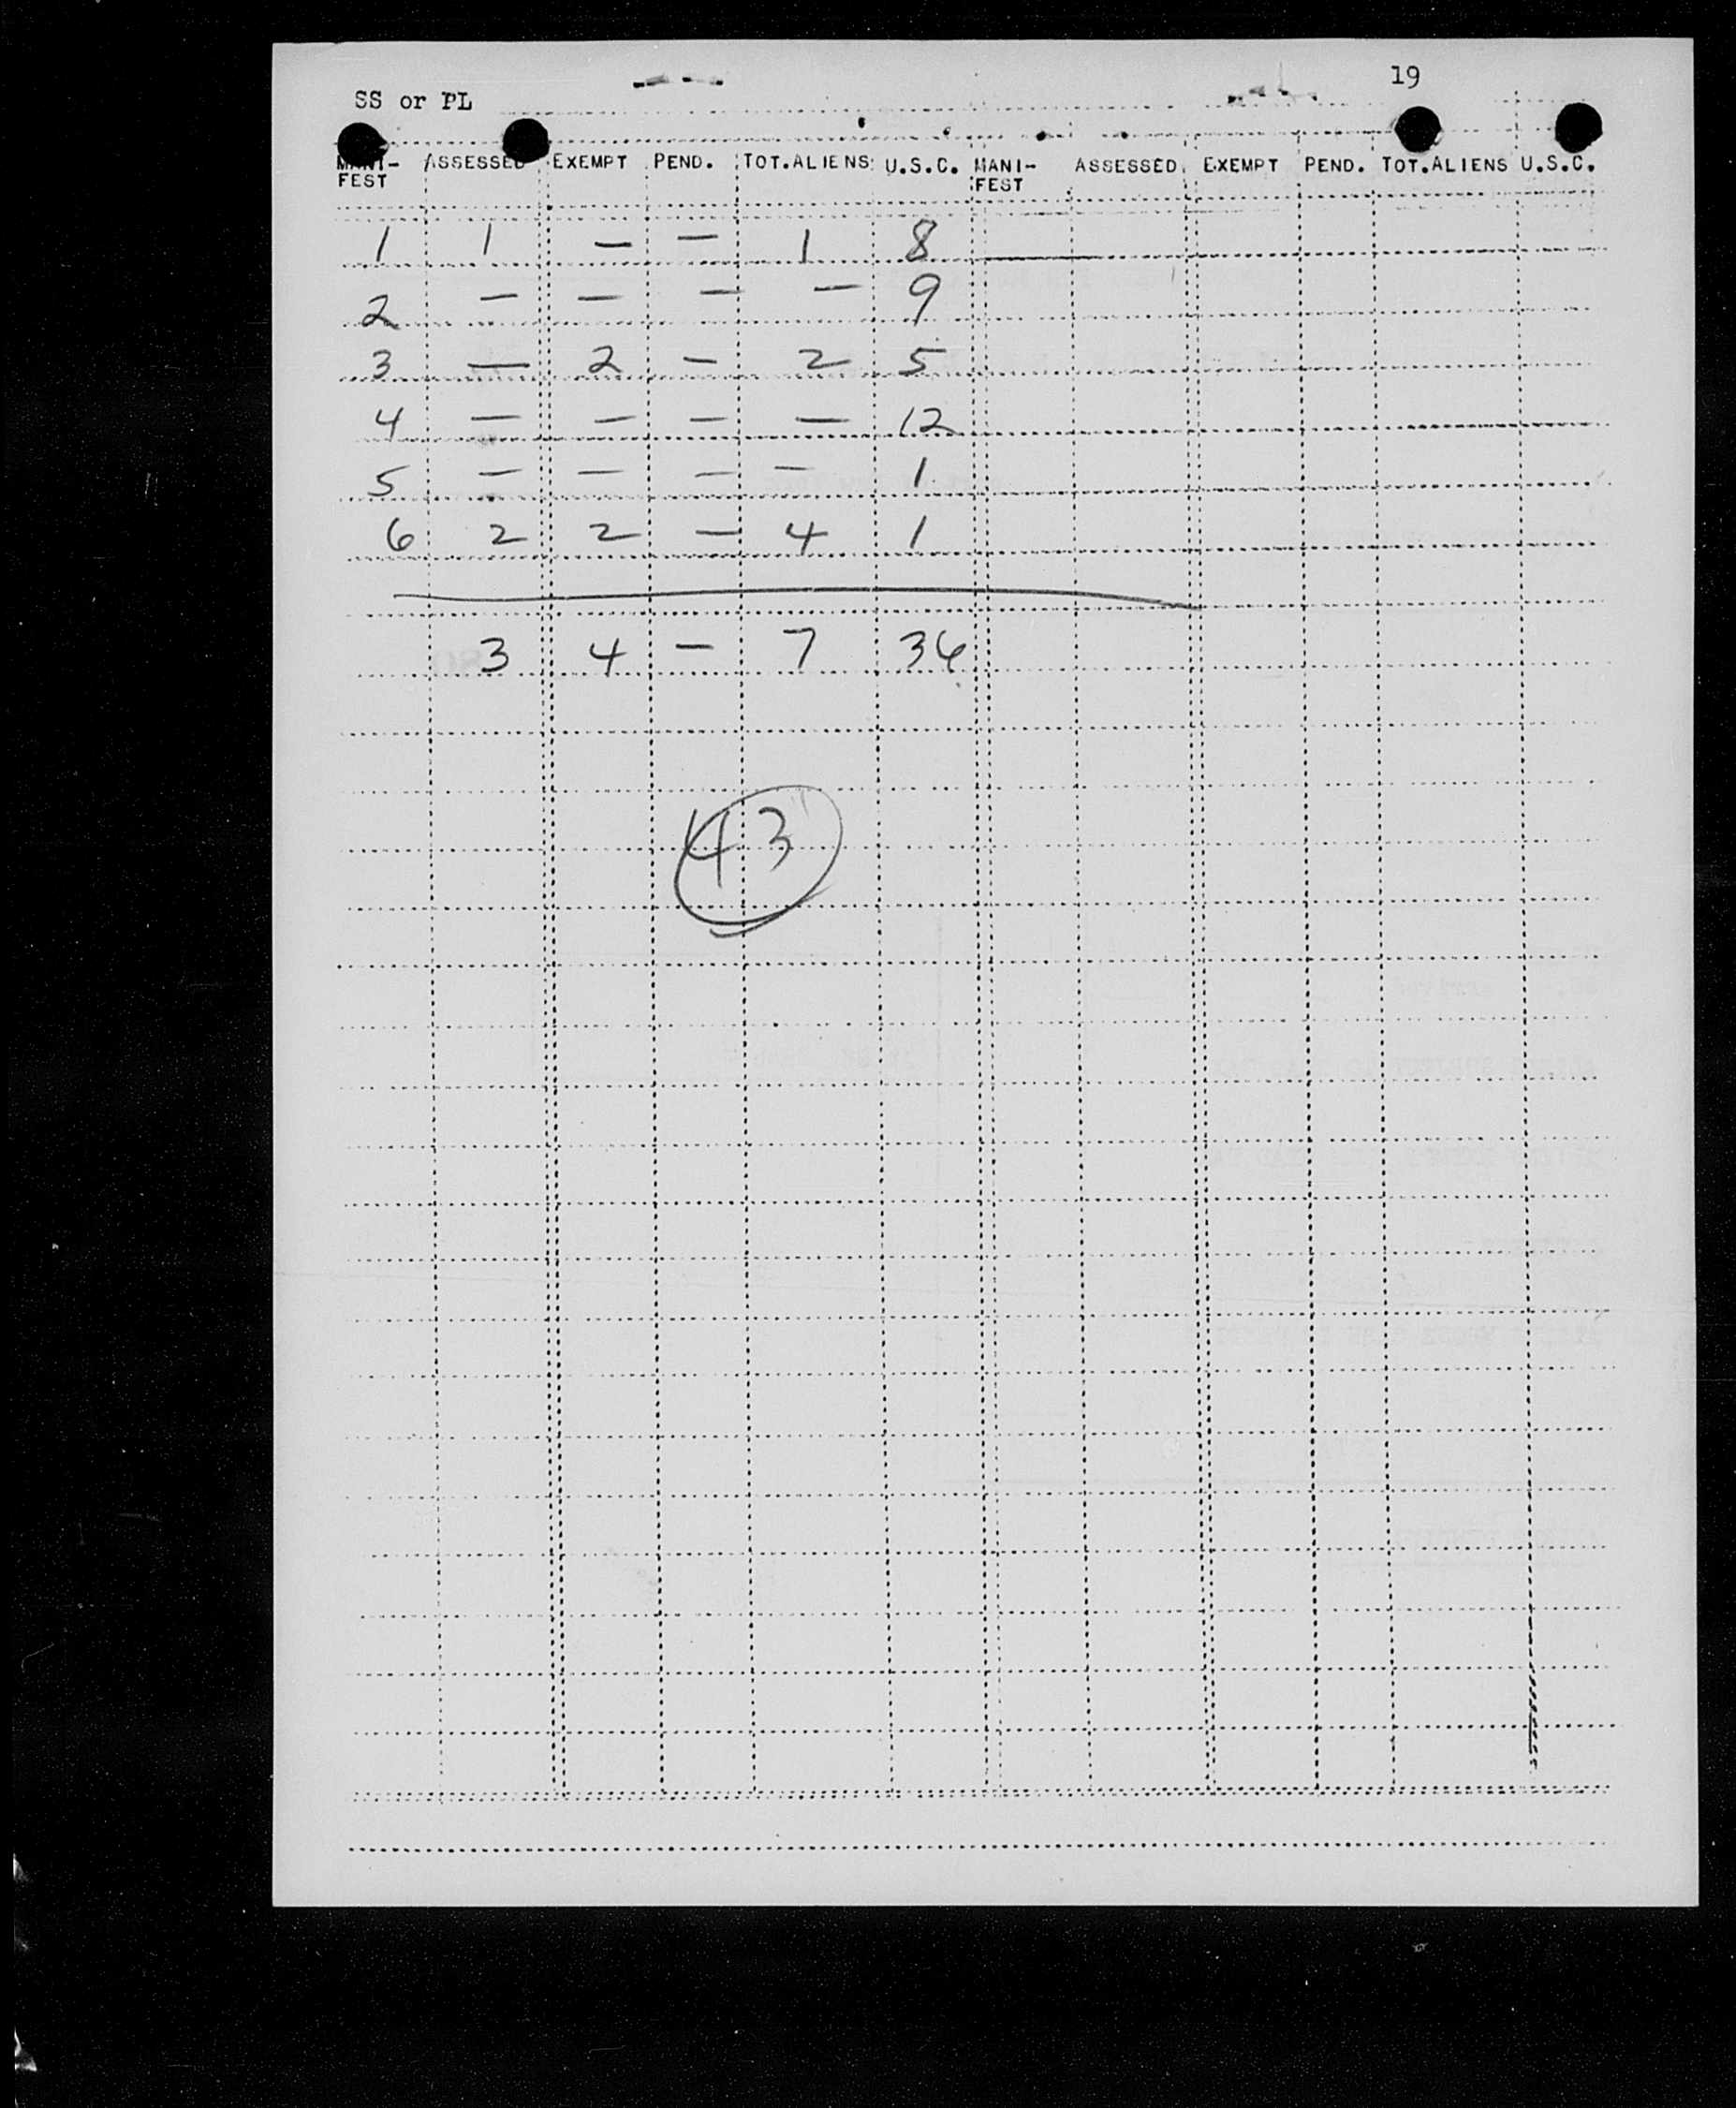 19
SS or PL
MANI- ASSESSED EXEMPT PEND. TOT.ALIENS U.S.C. MANI- ASSESSED EXEMPT PEND. TOT.ALIENS U.S.C.
FEST FEST
1 1 — — 1 8
2 — — — — 9
3 — 2 — 2 5
4 — — — — 12
5 — — — — 1
6 2 2 — 4 1
3 4 — 7 36
43